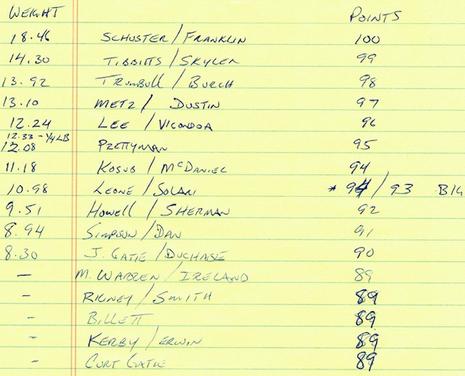 WEIGHT POINTS
18.46 SCHUSTER/FRANKLIN 100
14.30 TIBBITTS/SKYLER 99
13.92 TRUMBULL/BURCH 98
13.10 METZ/DUSTIN 97
12.24 LEE/VICONDOA 96
12.33 - 1/4 LB
12.08 PRETTYMAN 95
11.18 KOSUB/MCDANIEL 94
10.98 LEONE/SOLARI * 94/93 BIG
9.51 HOWELL/SHERMAN 92
8.94 SIMPSON/DAN 91
8.30 J. GATIE/DUCHASE 90
- M. WARREN/IRELAND 89
- RIGNEY/SMITH 89
- BILLETT 89
- KERBY/ERWIN 89
- CURT GATIE 89